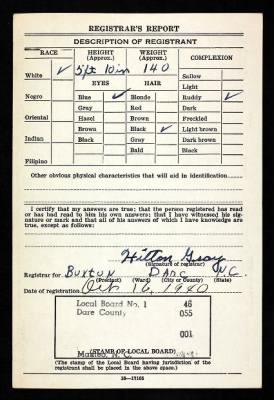 REGISTRAR'S REPORT
DESCRIPTION OF REGISTRANT
RACE HEIGHT (Approx.) WEIGHT (Approx.) COMPLEXION
White ✓ 5 ft 10 in 140 Sallow
EYES HAIR Light
Negro Blue ✓ Blonde Ruddy ✓
Gray Red Dark
Oriental Hazel Brown Freckled
Brown Black ✓ Light brown
Indian Black Gray Dark brown
Bald Black
Filipino
Other obvious physical characteristics that will aid in identification
I certify that my answers are true; that the person registered has read or has had read to him his own answers; that I have witnessed his signature or mark and that all of his answers of which I have knowledge are true, except as follows:
Hilton Gray
(Signature of registrar)
Registrar for Buxton Dare N.C.
(Precinct) (Ward) (City or County) (State)
Date of registration Oct 16, 1940
Local Board No. 1 46
Dare County 055
001
Manteo, N. C.
(STAMP OF LOCAL BOARD)
(The stamp of the Local Board having jurisdiction of the registrant shall be placed in the above space.)
16—17105